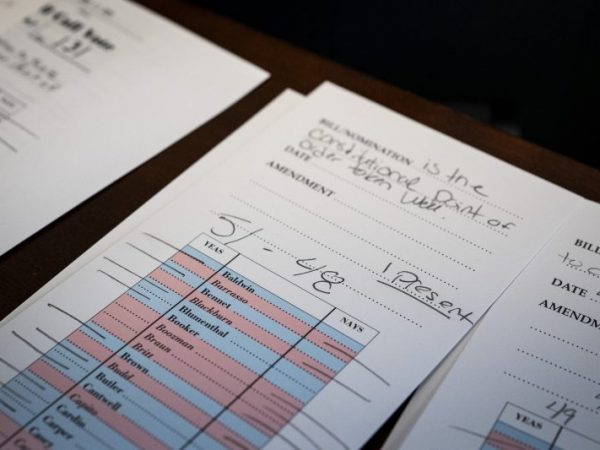 ll Call Vote
131
NAYS
BILL/NOMINATION is the
Constitutional Point of
DATE Order taken Well.
AMENDMENT
51 - 48
1 Present
YEAS
NAYS
Baldwin
Barrasso
Bennet
Blackburn
Blumenthal
Booker
Boozman
Braun
Britt
Brown
Budd
Butler
Cantwell
Capito
Cardin
Carper
Casey
BILL
DATE
AMENDM
49
YEAS